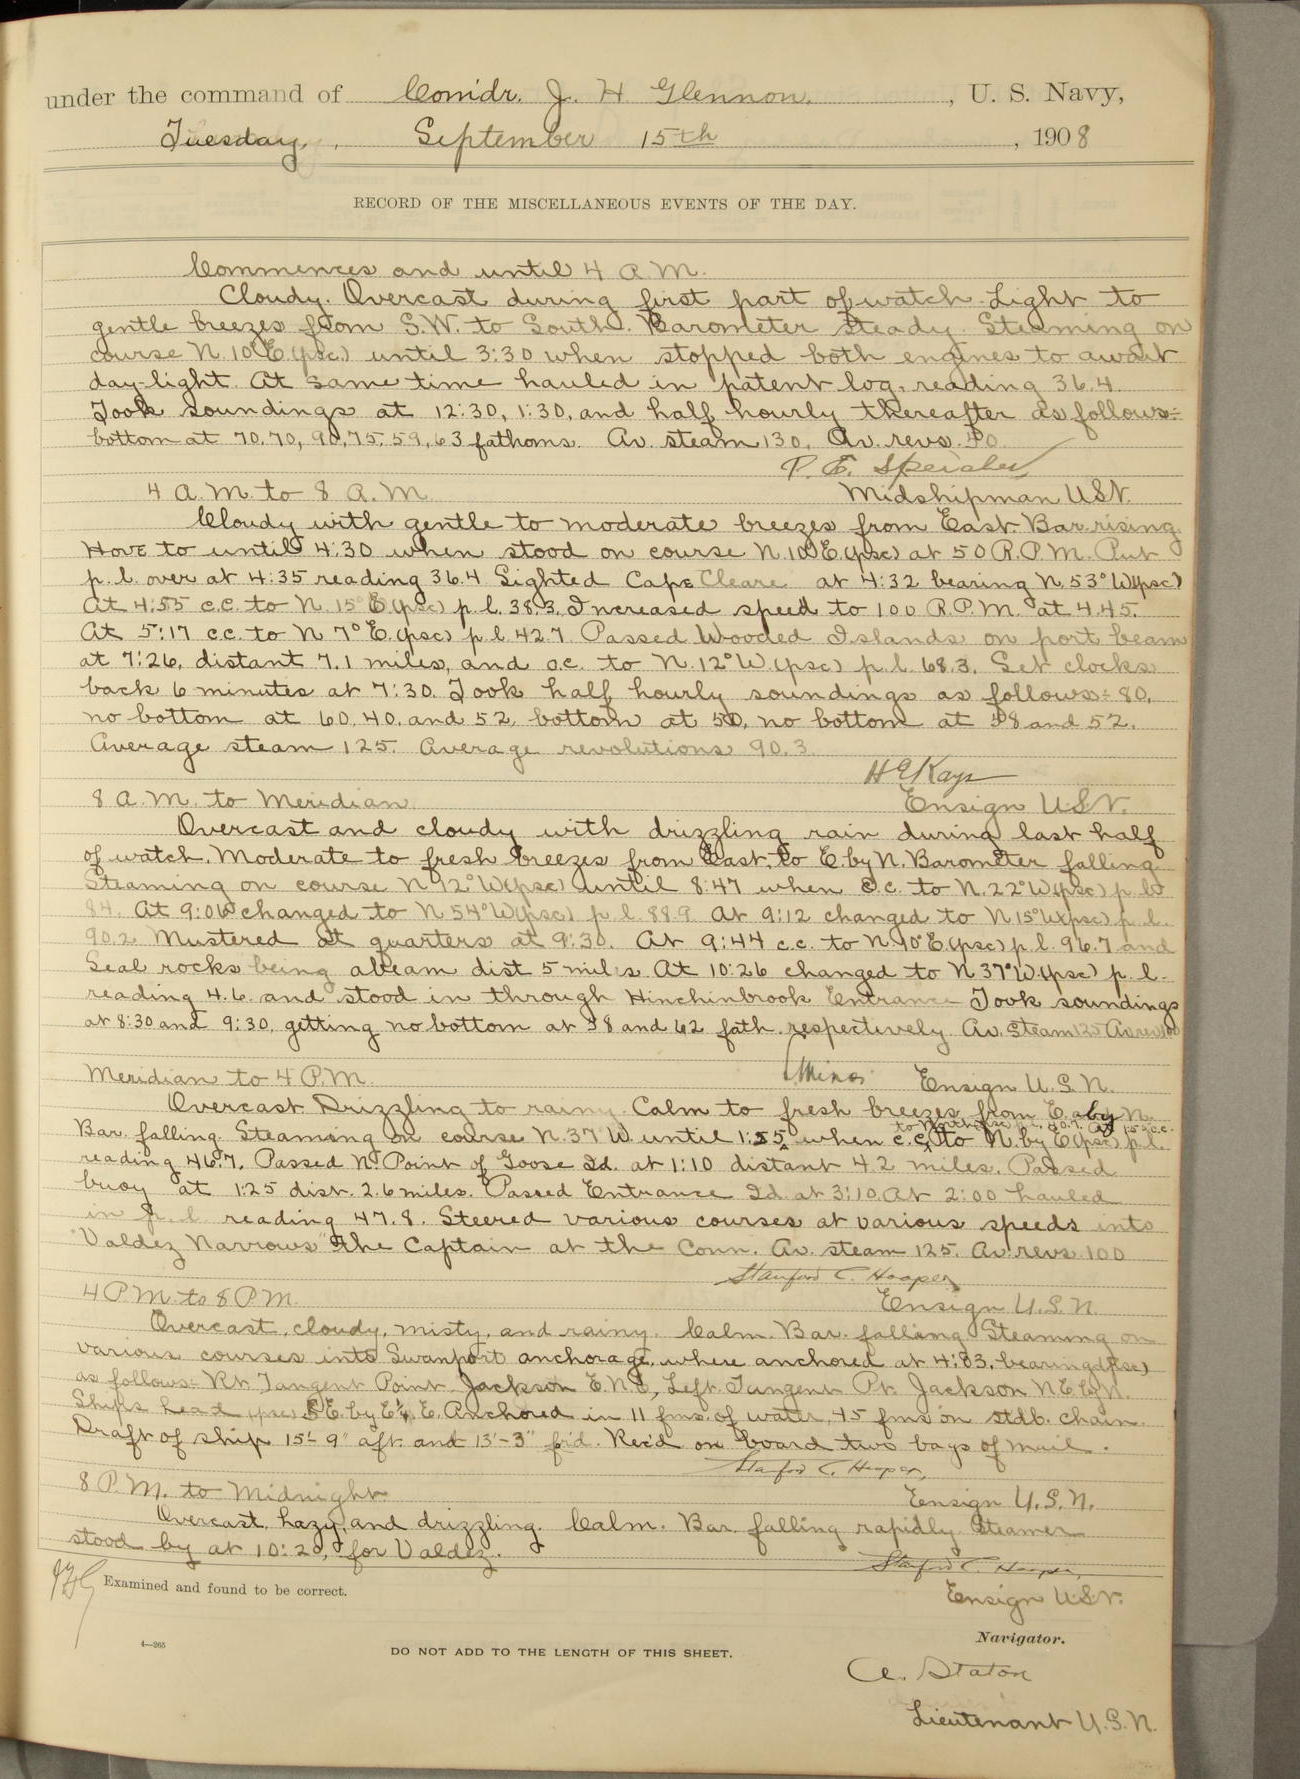 under the command of Comdr. J. H Glennon, U. S. Navy,
Tuesday, September 15th, 1908
RECORD OF THE MISCELLANEOUS EVENTS OF THE DAY.
Commences and until 4 A.M.
Cloudy. Overcast during first part of watch. Light to
gentle breezes from S.W. to South. Barometer steady. Steaming on
course N. 10° E (psc) until 3:30 when stopped both engines to await
day-light. At same time hauled in patent log, reading 36.4.
Took soundings at 12:30, 1:30, and half hourly thereafter as follows:-
bottom at 70, 70, 90, 75, 59, 63 fathoms. Av. steam 130, Av. revs. 40
P. E. Speicher
4 A.M. to 8 A.M. Midshipman USN.
Cloudy with gentle to moderate breezes from East. Bar. rising.
Hove to until 4:30 when stood on course N. 10° E (psc) at 50 R.P.M. Put
p.l. over at 4:35 reading 36.4 Sighted Cape Cleare at 4:32 bearing N. 53° W (psc)
At 4:55 c.c. to N. 15° E (psc) p.l. 38.3. Increased speed to 100 R.P.M. at 4.45.
At 5:17 c.c. to N 7° E. (psc) p.l. 42.7. Passed Wooded Islands on port beam
at 7:26, distant 7.1 miles, and c.c. to N. 12° W. (psc) p.l. 68.3. Set clocks
back 6 minutes at 7:30. Took half hourly soundings as follows:- 80,
no bottom at 60, 40, and 52, bottom at 50, no bottom at 58 and 52.
Average steam 125. Average revolutions 90.3.
H E Kays
8 A.M. to Meridian. Ensign U.S.N.
Overcast and cloudy with drizzling rain during last half
of watch. Moderate to fresh breezes from East to E. by N. Barometer falling.
Steaming on course N 12° W (psc) until 8:47 when c.c. to N. 22° W (psc) p.l.
84. At 9:06 changed to N 54° W (psc) p.l. 88.9 At 9:12 changed to N 15° W (psc) p.l.
90.2 Mustered at quarters at 9:30. At 9:44 c.c. to N. 10° E (psc) p.l. 96.7 and
Seal rocks being abeam dist 5 miles. At 10:26 changed to N 37° W (psc) p.l.
reading 4.6. and stood in through Hinchinbrook Entrance Took soundings
at 8:30 and 9:30, getting no bottom at 38 and 62 fath. respectively Av. Steam 125 Av revs 100
Meridian to 4 P.M. Ensign U.S.N.
Overcast Drizzling to rainy. Calm to fresh breezes from E. by N.
Bar. falling. Steaming on course N. 37° W. until 1:55 when c.c. to N. by E (psc) p.l.
reading 46.7. Passed No. Point of Goose Id. at 1:10 distant 4.2 miles. Passed
buoy at 1:25 dist. 2.6 miles. Passed Entrance Id. at 3:10. At 2:00 hauled
in p.l. reading 47.8. Steered various courses at various speeds into
"Valdez Narrows" the Captain at the Conn. Av. steam 125. Av. revs. 100
Stanford C. Hooper
4 P.M. to 8 P.M. Ensign U.S.N.
Overcast, cloudy, misty, and rainy. Calm. Bar. falling. Steaming on
various courses into Swanport anchorage, where anchored at 4:33, bearings (psc)
as follows:- Rt. Tangent Point Jackson E.N.E., Left. Tangent Pt. Jackson N.E. by N.
Ship's head (psc) S.E. by E ¼ E. Anchored in 11 fms. of water, 45 fms on stdb. chain.
Draft of ship 15'-9" aft. and 13'-3" fr'd. Rec'd on board two bags of mail.
Stanford C. Hooper,
8 P.M. to Midnight. Ensign U.S.N.
Overcast, hazy, and drizzling. Calm. Bar. falling rapidly. Steamer
stood by at 10:20, for Valdez.
Stanford C. Hooper,
JHG Examined and found to be correct.
Ensign U.S.N.
Navigator.
4—265
DO NOT ADD TO THE LENGTH OF THIS SHEET.
A. Staton
Lieutenant U.S.N.